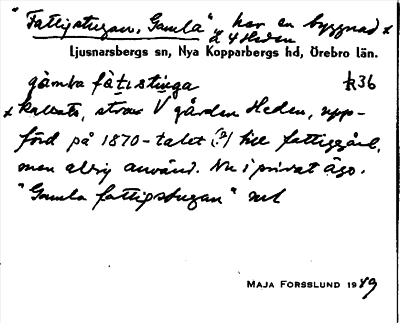 "Fattigstugan, Gamla" har en byggnad x
å 4 Heden
Ljusnarsbergs sn, Nya Kopparbergs hd, Örebro län.
gàmba fàtistùga
k36
x kallats, strax V gården Heden, upp-
förd på 1870-talet (?) till fattiggård,
men aldrig använd. Nu i privat ägo.
"Gamla fattigstugan"
MAJA FORSSLUND 1949